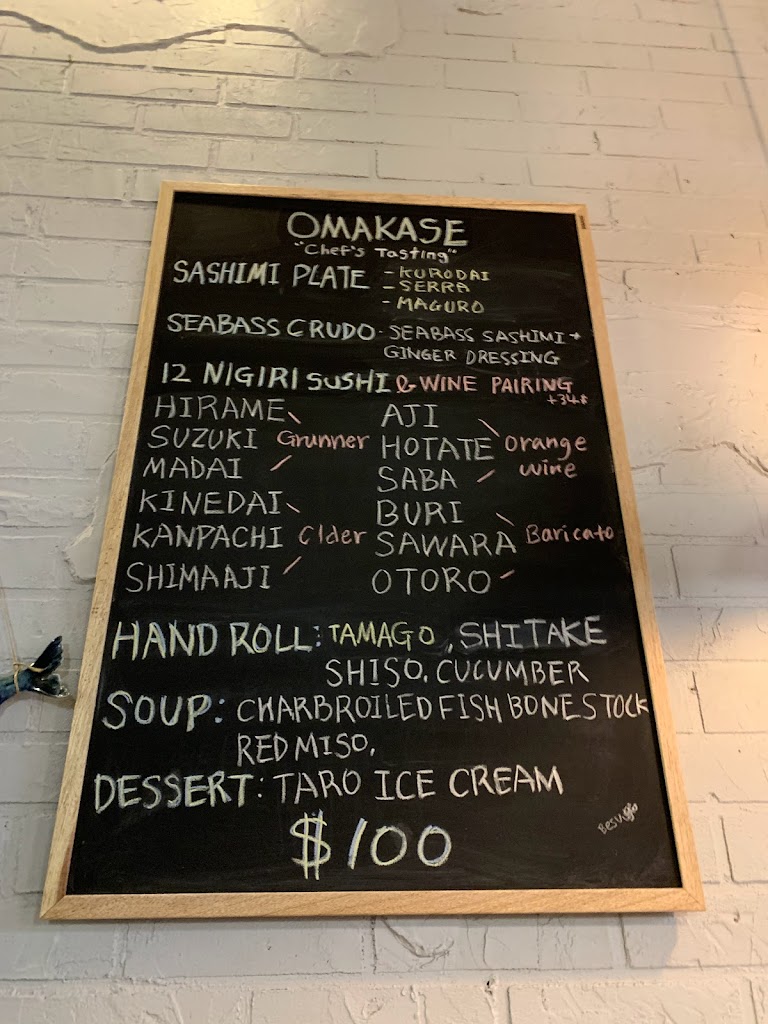 OMAKASE
"Chef's Tasting"
SASHIMI PLATE - KURODAI
- SERRA
- MAGURO
SEABASS CRUDO - SEABASS SASHIMI +
GINGER DRESSING
12 NIGIRI SUSHI & WINE PAIRING
+34$
HIRAME
SUZUKI Grunner
MADAI
KINEDAI
KANPACHI Cider
SHIMAAJI
AJI
HOTATE orange
SABA wine
BURI
SAWARA Baricato
OTORO
HAND ROLL: TAMAGO, SHITAKE
SHISO, CUCUMBER
SOUP: CHARBROILED FISH BONE STOCK
RED MISO,
DESSERT: TARO ICE CREAM
$100
Besugio